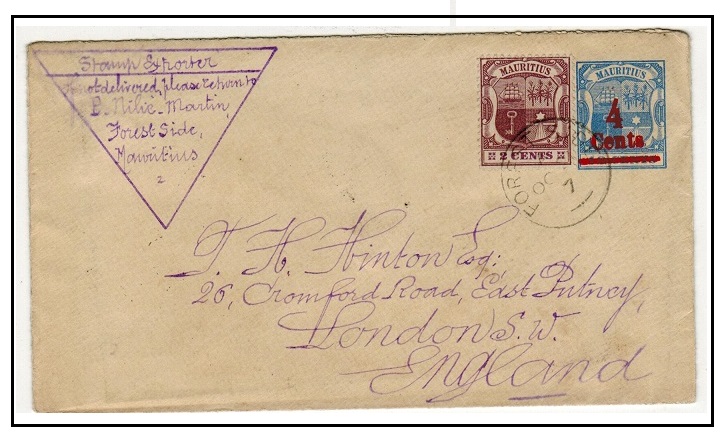 Stamp Exporter
If not delivered, please return to
P. Nilic-Martin,
Forest Side,
Mauritius
2
MAURITIUS
2 CENTS
MAURITIUS
4
Cents
FOREST
OC
7
T. H. Hinton Esq:
26, Cromford Road, East Putney,
London S.W.
England